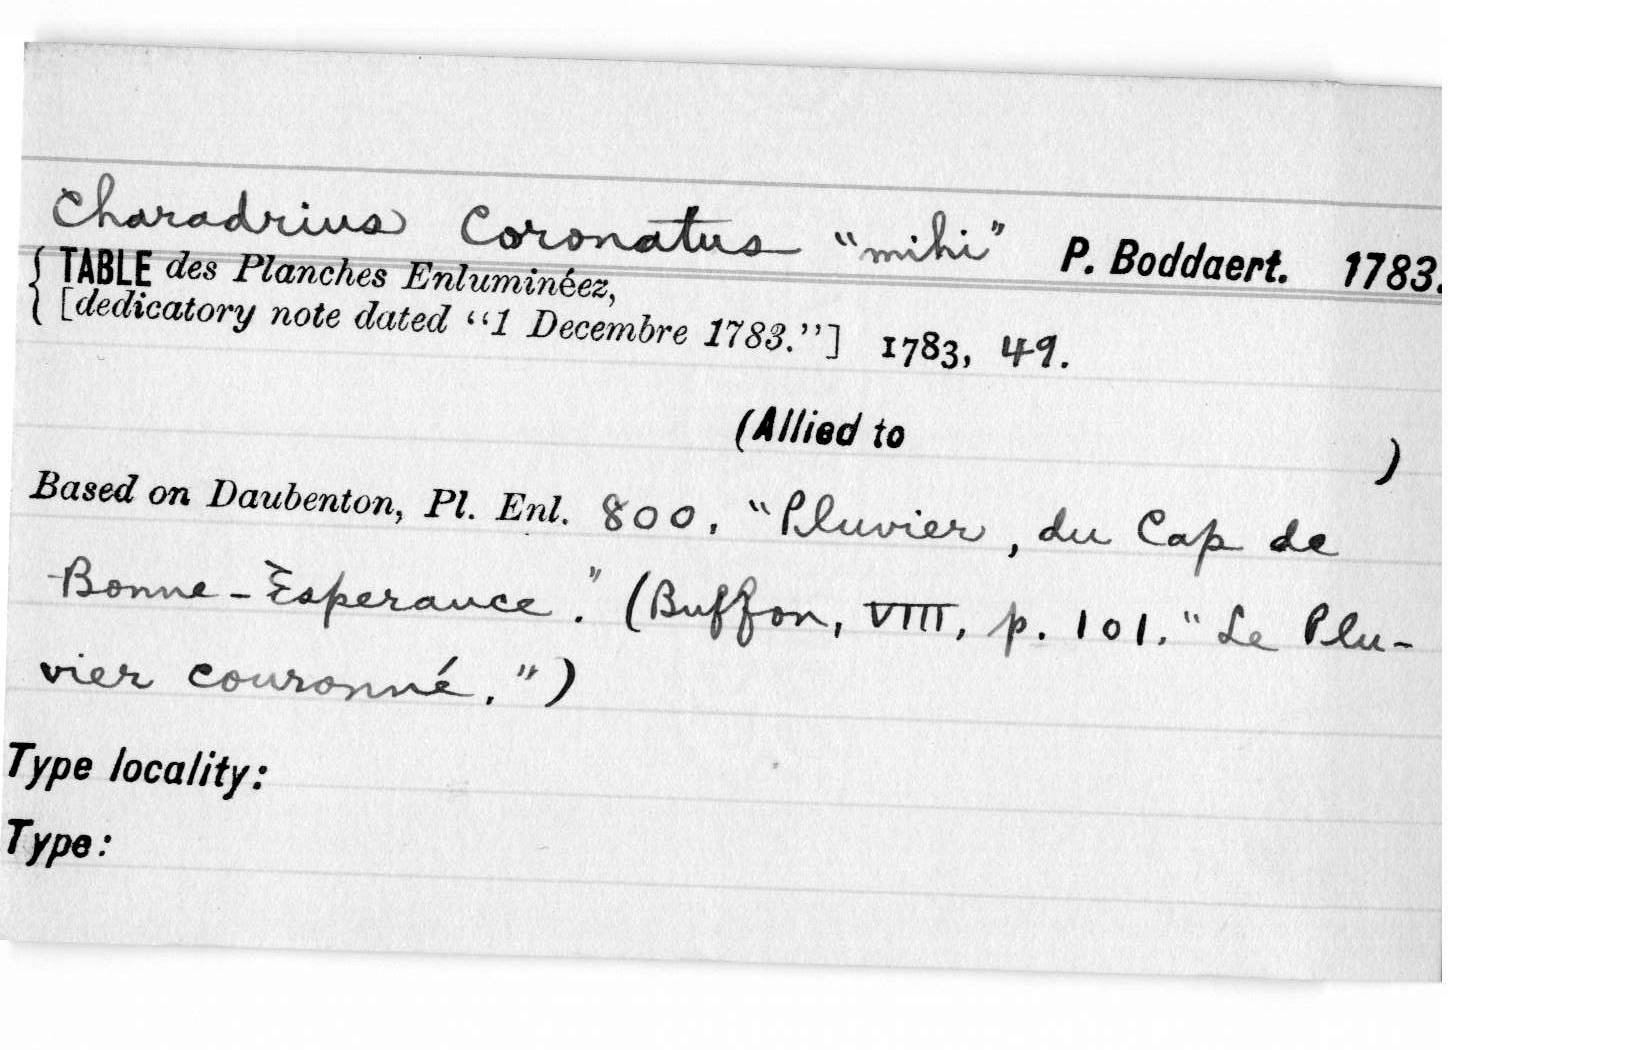 Charadrius Coronatus "mihi" P. Boddaert. 1783.
{ TABLE des Planches Enluminéez,
{ [dedicatory note dated "1 Decembre 1783."] 1783, 49.
(Allied to )
Based on Daubenton, Pl. Enl. 800. "Pluvier, du Cap de
Bonne-Esperance." (Buffon, VIII, p. 101. "Le Plu-
vier couronné.")
Type locality:
Type: